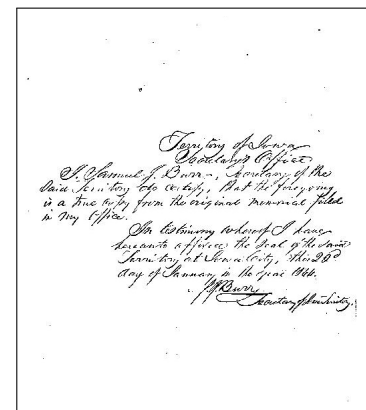 Territory of Iowa
Secretary's Office
I, Samuel J. Burr, Secretary of the
said Territory do certify, that the foregoing
is a true copy from the original memorial filed
in my Office.
In testimony whereof I have
hereunto affixed the Seal of the said
Territory, at Iowa City, this 29d
day of January in the year 1844.
S J Burr
Secretary of the Territory.